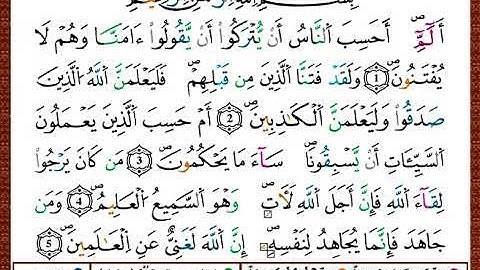 بِسْمِ ٱللَّهِ ٱلرَّحْمَٰنِ ٱلرَّحِيمِ
الٓمٓ ۝١ أَحَسِبَ ٱلنَّاسُ أَن يُتْرَكُوٓا۟ أَن يَقُولُوٓا۟ ءَامَنَّا وَهُمْ لَا
يُفْتَنُونَ ۝١ وَلَقَدْ فَتَنَّا ٱلَّذِينَ مِن قَبْلِهِمْ ۖ فَلَيَعْلَمَنَّ ٱللَّهُ ٱلَّذِينَ
صَدَقُوا۟ وَلَيَعْلَمَنَّ ٱلْكَٰذِبِينَ ۝٢ أَمْ حَسِبَ ٱلَّذِينَ يَعْمَلُونَ
ٱلسَّيِّـَٔاتِ أَن يَسْبِقُونَا ۚ سَآءَ مَا يَحْكُمُونَ ۝٣ مَن كَانَ يَرْجُوا۟
لِقَآءَ ٱللَّهِ فَإِنَّ أَجَلَ ٱللَّهِ لَأٓتٍ ۚ وَهُوَ ٱلسَّمِيعُ ٱلْعَلِيمُ ۝٤ وَمَن
جَٰهَدَ فَإِنَّمَا يُجَٰهِدُ لِنَفْسِهِۦٓ ۚ إِنَّ ٱللَّهَ لَغَنِىٌّ عَنِ ٱلْعَٰلَمِينَ ۝٥